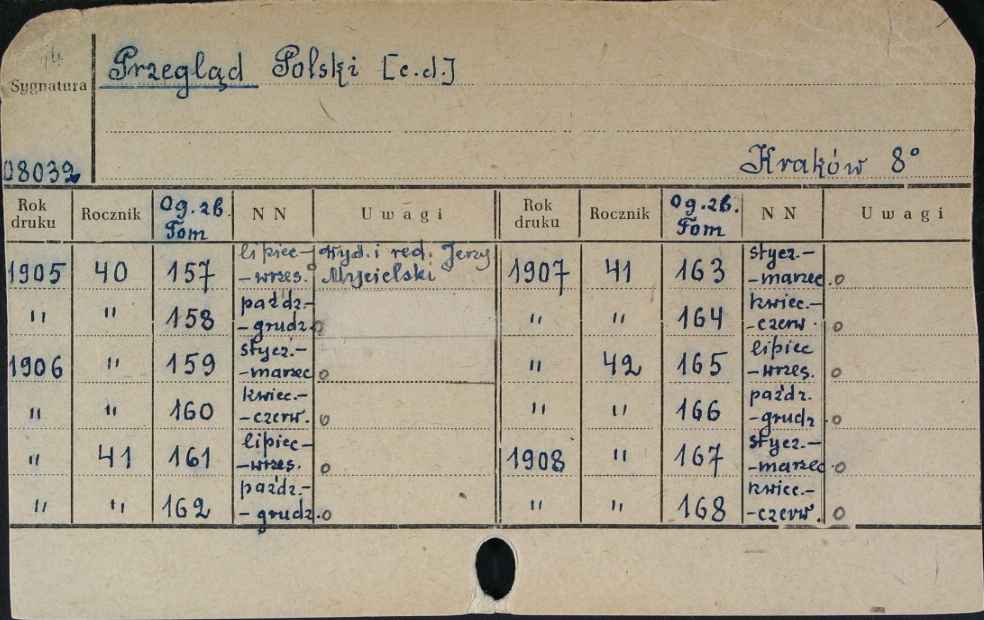 Sygnatura
Przegląd Polski [c.d.]
08032
Kraków 8°
Rok druku Rocznik Og.zb. Tom NN Uwagi Rok druku Rocznik Og.zb. Tom NN Uwagi
1905 40 157 lipiec- -wrzes. o Wyd. i red. Jerzy Mycielski 1907 41 163 stycz.- -marzec o
" " 158 paźdz.- -grudz. o " " 164 kwiec.- -czerw. o
1906 " 159 stycz.- -marzec o " 42 165 lipiec -wrzes. o
" " 160 kwiec.- -czerw. o " " 166 paźdz. -grudz. o
" 41 161 lipiec- -wrzes. o 1908 " 167 stycz.- -marzec o
" " 162 paźdz.- -grudz. o " " 168 kwiec.- -czerw. o